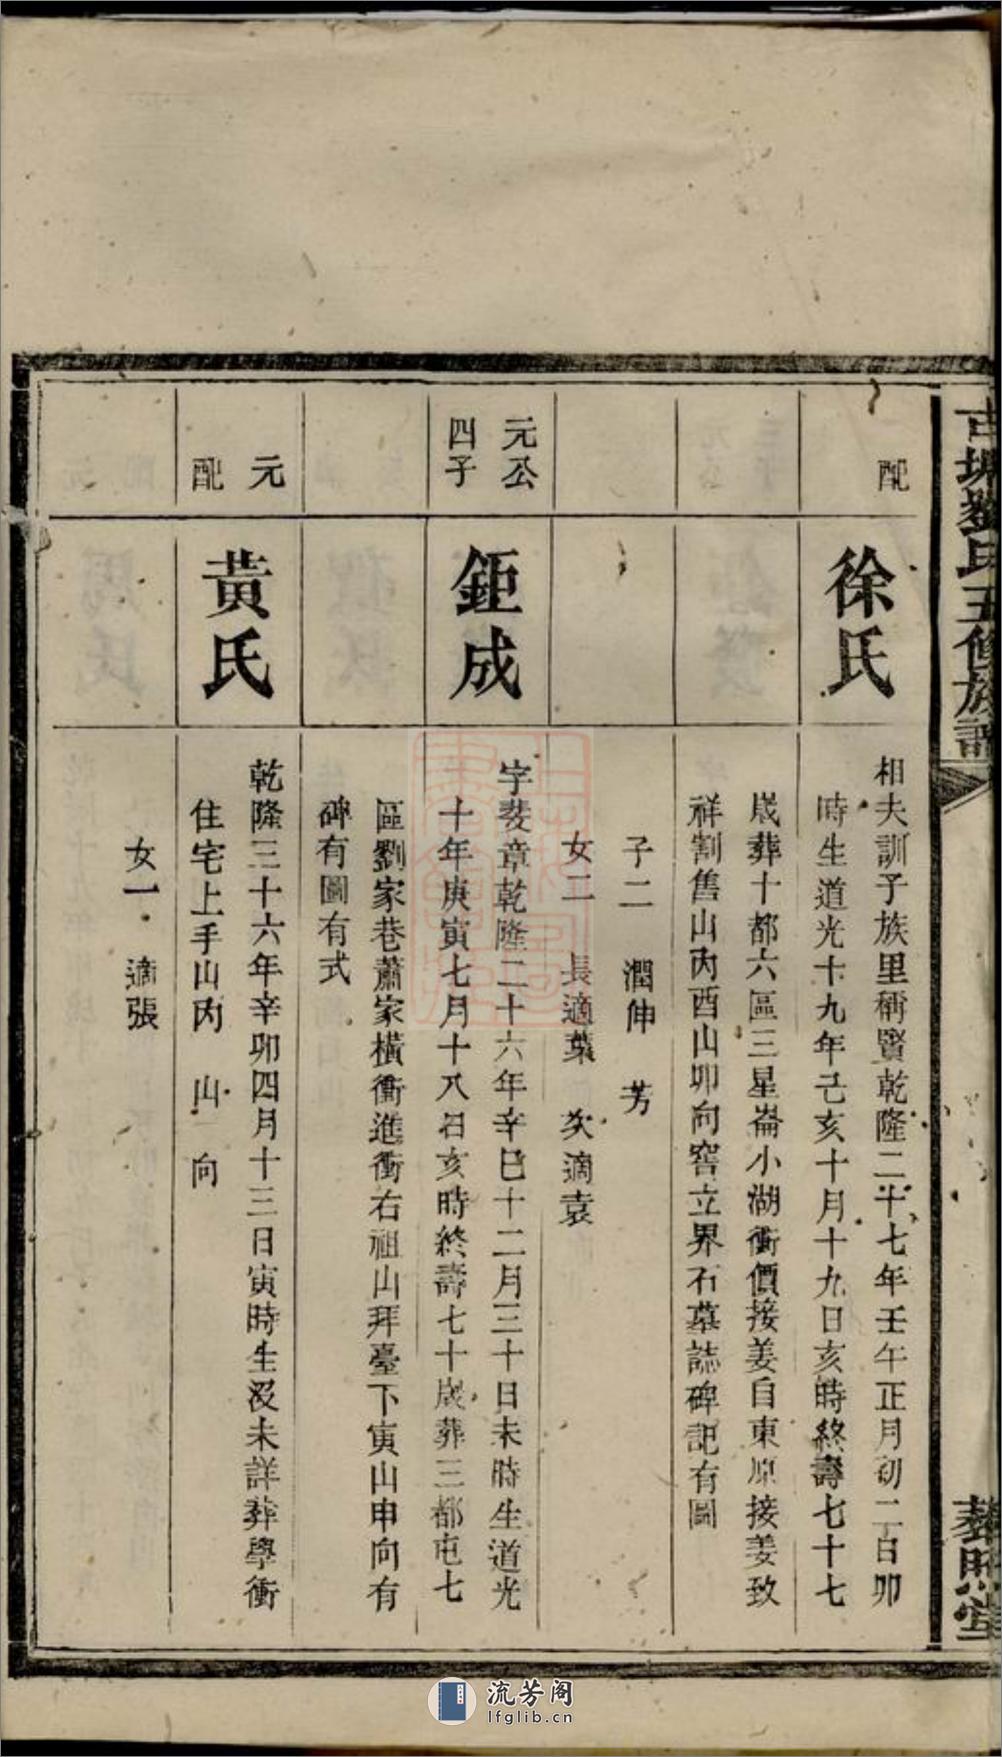 古塘劉氏五修族譜
藜照堂
配
徐氏
相夫訓子族里稱賢乾隆二十七年壬午正月初二日卯
時生道光十九年己亥十月十九日亥時終壽七十七
歲葬十都六區三星崙小湖衝價接姜自東原接姜致
祥割售山內酉山卯向窖立界石墓誌碑記有圖
子二 潤伸 芳
女二 長適葉 次適袁
元公
四子
鉅成
字斐章乾隆二十六年辛巳十二月三十日未時生道光
十年庚寅七月十八日亥時終壽七十歲葬三都屯七
區劉家巷蕭家橫衝進衝右祖山拜臺下寅山申向有
碑有圖有式
元
配
黃氏
乾隆三十六年辛卯四月十三日寅時生沒未詳葬學衝
住宅上手山內 山 向
女一 適張
流芳阁
lfglib.cn